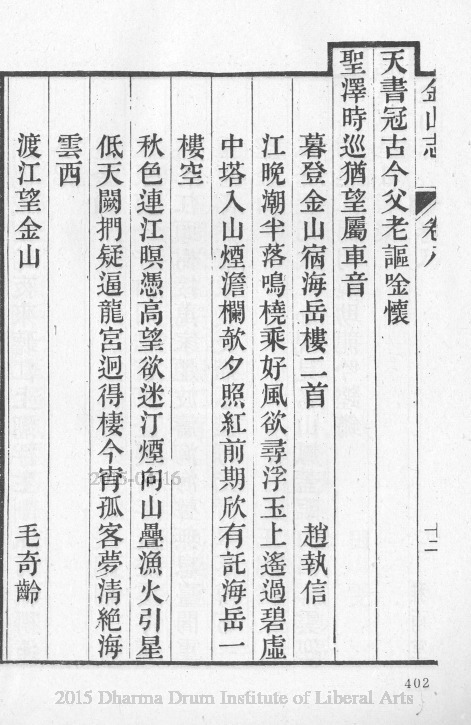 金山志 卷八 十二
天書冠古今父老謳唫懷
聖澤時巡猶望屬車音
暮登金山宿海岳樓二首 趙執信
江晚潮半落鳴橈乘好風欲尋浮玉上遙過碧虛
中塔入山煙澹欄欹夕照紅前期欣有託海岳一
樓空
秋色連江暝憑高望欲迷汀煙向山疊漁火引星
低天闕捫疑逼龍宮迥得棲今宵孤客夢淸絕海
雲西
渡江望金山 毛奇齡
402
2015-06-16
2015 Dharma Drum Institute of Liberal Arts